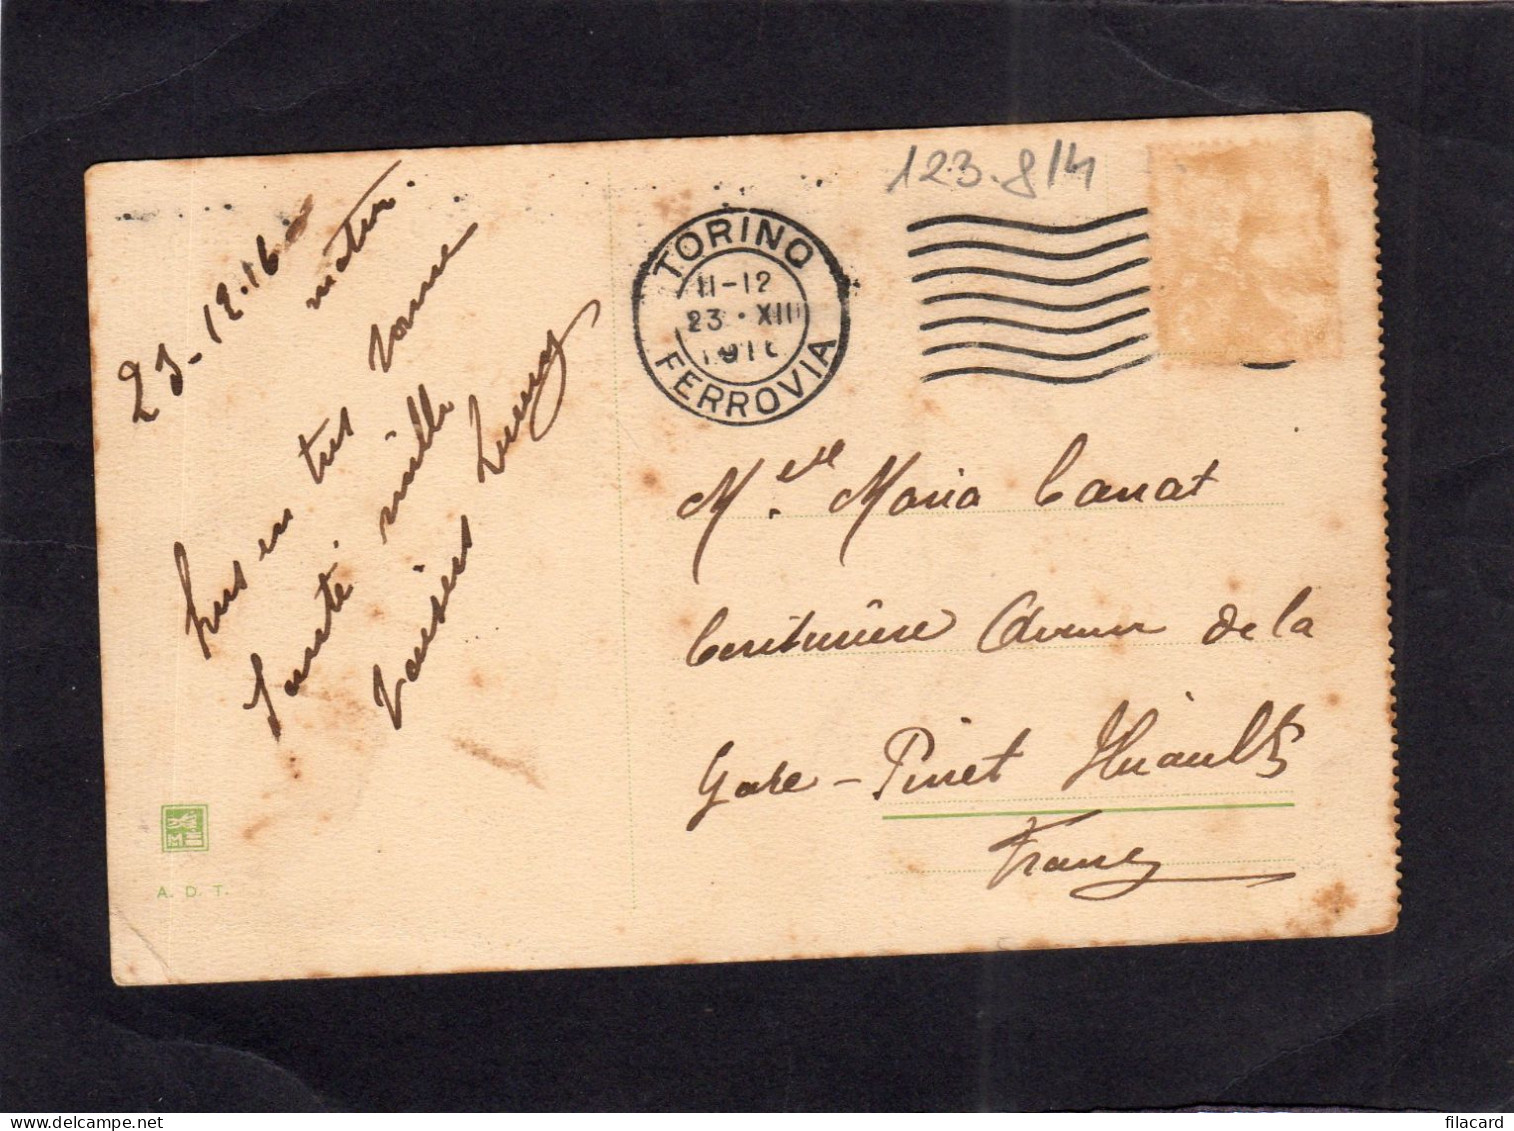 123.814
TORINO
11-12
23 · XII
FERROVIA
23-12-16
matin.
suis en très bonne
santé. mille
baisers
Melle Maria Canat
Couturière Avenue de la
Gare - Pinet Hérault
France
A. D. T.
filacard.com